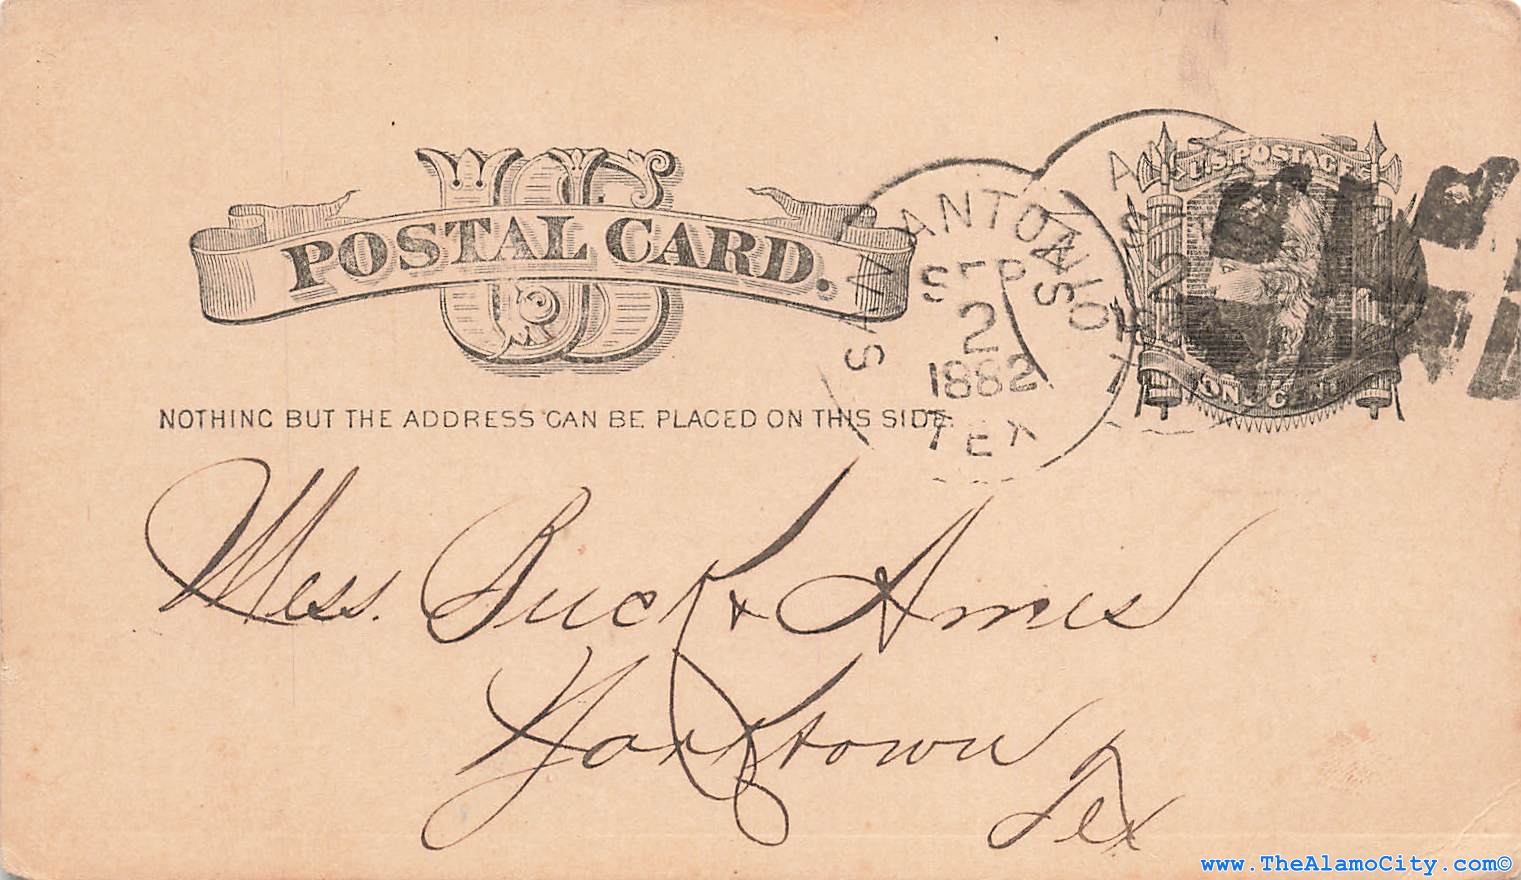 US
POSTAL CARD.
U.S. POSTAGE
ONE CENT
SAN ANTONIO
SEP
2
1882
TEX
NOTHING BUT THE ADDRESS CAN BE PLACED ON THIS SIDE.
Mess. Buck & Amis
Yorktown
Tex
www.TheAlamoCity.com©